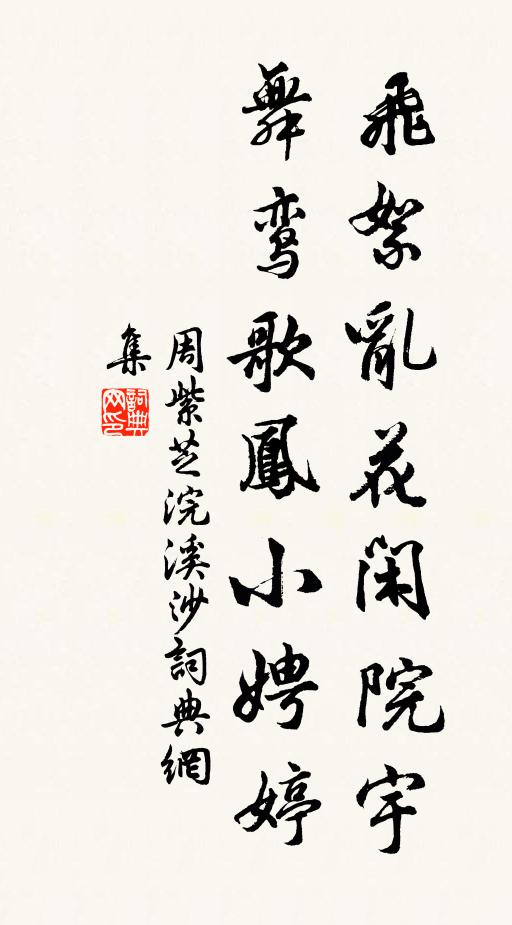 飛絮亂花閑院宇
舞鸾歌鳳小娉婷
周紫芝浣溪沙詞典網
集
詞典
网印